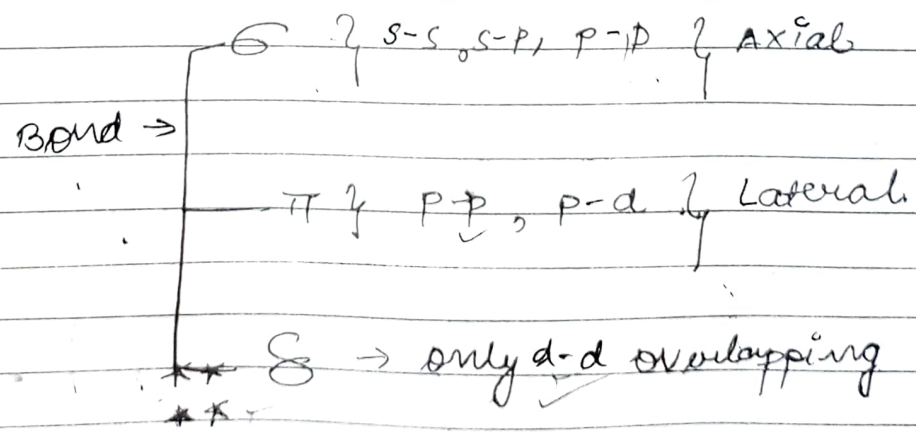 σ } s-s, s-p, p-p } Axial
Bond →
π } p-p, p-d } Lateral
** δ → only d-d overlapping
**